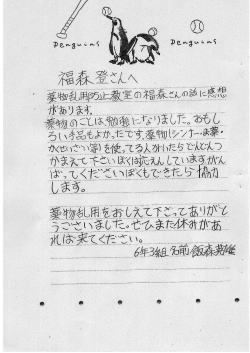 Penguins
Penguins
福森登さんへ
薬物乱用防止教室の福森さんの話に感想
があります。
薬物のことは勉強になりました。おもし
ろい話もよかったです。薬物(シンナー・麻薬・
かくせい剤等)を使ってる人がいたらどんどん
つかまえて下さい。ぼくは応えんしていますがん
ばってください。ぼくもできたら協力
します。
薬物乱用をおしえて下さってありがと
うございました。ぜひまた休みがあ
れば来てください。
6年3組 名前 飯森英雄